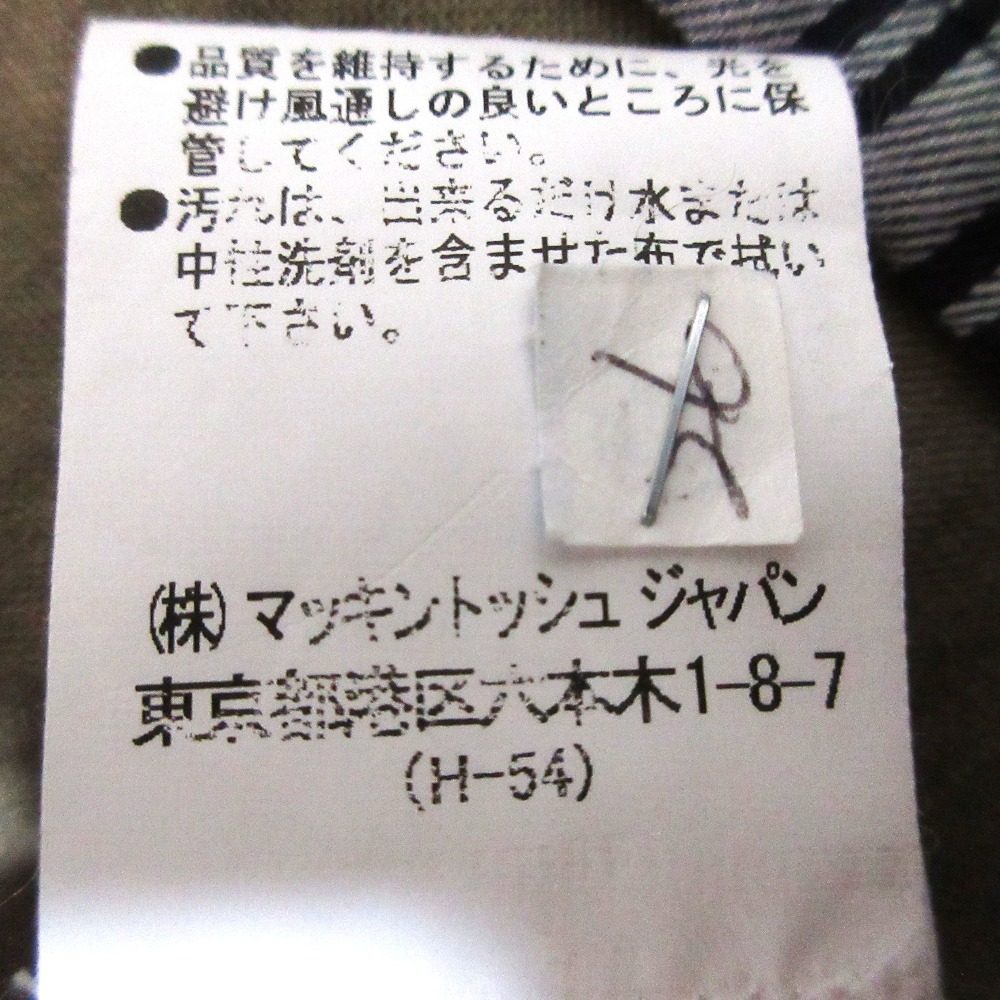 ●品質を維持するために、光を
避け風通しの良いところに保
管してください。
●汚れは、出来るだけ水または
中性洗剤を含ませた布で拭い
て下さい。
(株)マッキントッシュジャパン
東京都港区六本木1-8-7
(H-54)